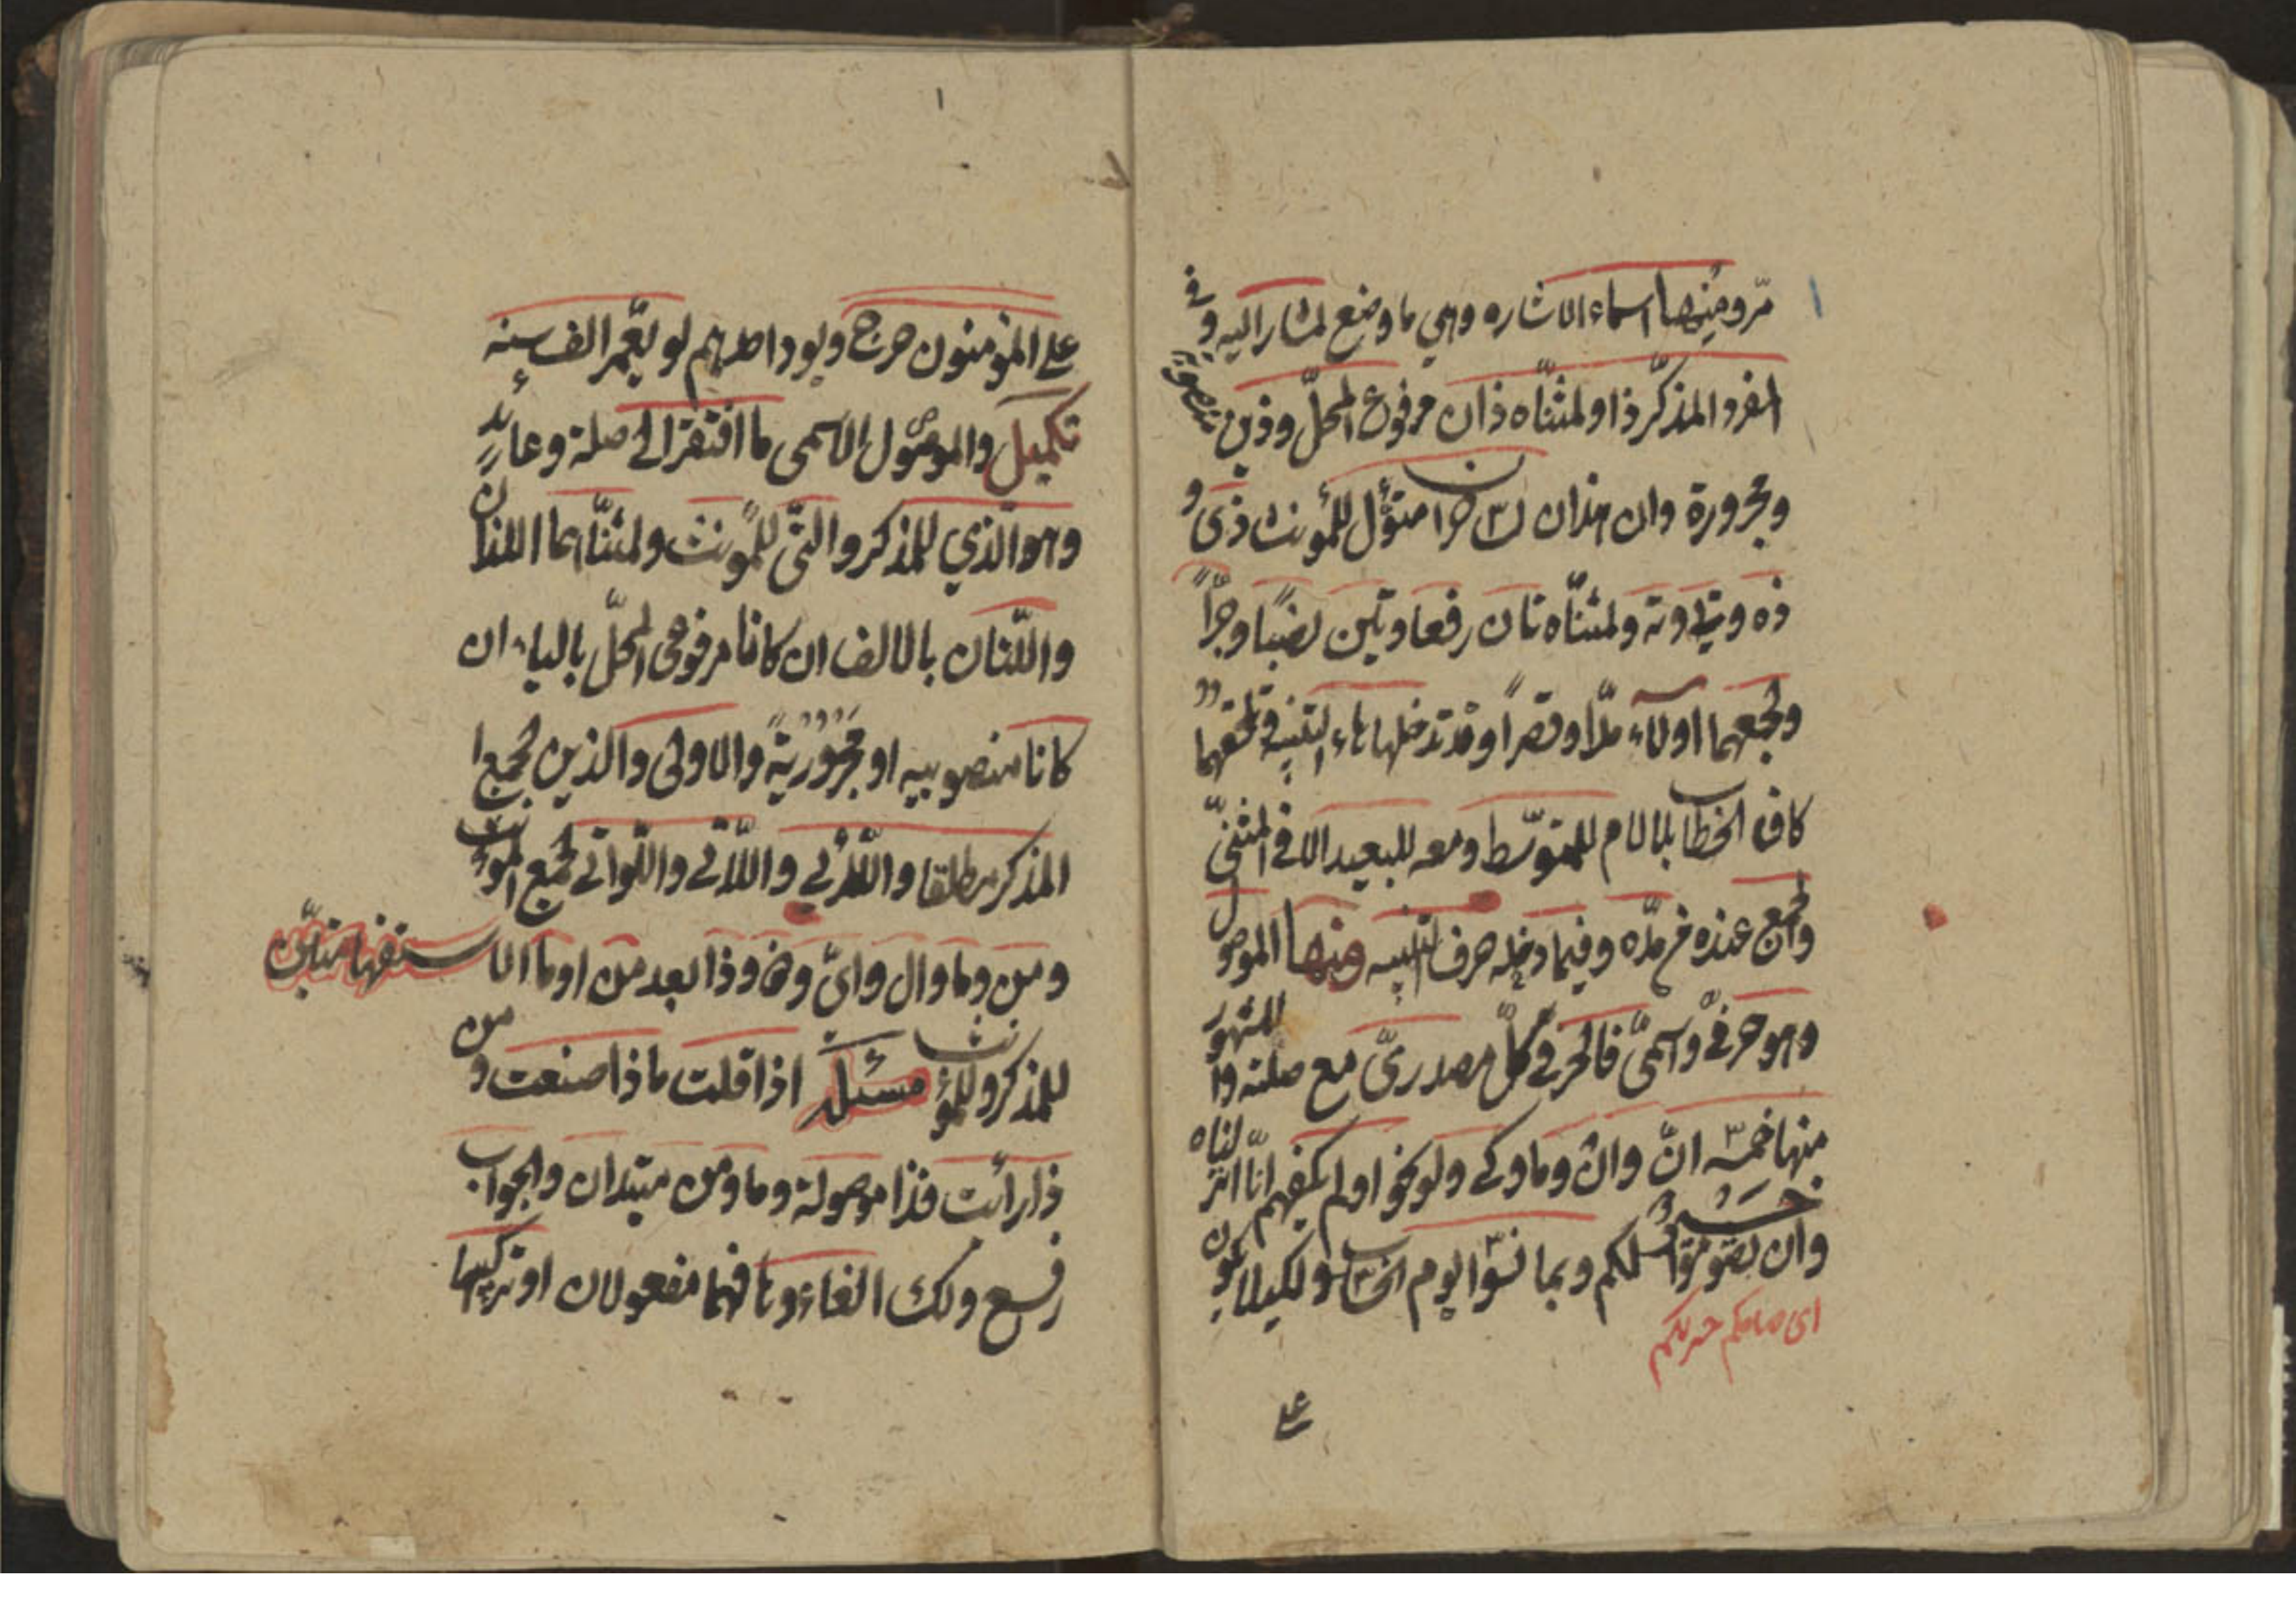 مرّ ومنها اسماء الاشاره وهي ما وضع لمشار اليه وفي
المفرد المذكّر ذا ولمثنّاه ذان مرفوع المحلّ وذين منصوبة
ومجرورة وان هذان لساحران متؤّل للمؤنث ذى و
ذه وتى وته ولمثنّاه تان رفعا وتين نصبًا وجرّاً
ولجمعهما اولآء مدّا وقصراً وقد تدخلها هاء التنبيه وتلحقهما
كاف الخطاب بلا لام للمتوسّط ومعه للبعيد الا في المثنىّ
والجمع عند من مدّه وفيما دخله حرف التنبيه ومنها الموصول
وهو حرفيّ واسمىّ فالحرفي كلّ مصدرىّ مع صلته والمشهور
منها خمسة انّ وان وما وكى ولو نحو اولم يكفهم انّا انزلناه
وان تصوموا خير لكم وبما نسوا يوم الحساب ولكيلا يكون
على
على المؤمنون حرج ويود احدهم لو يعّمر الف سنه
تكميل والموصول الاسمى ما افتقر الى صلة وعائد
وهو الّذي للمذكر والتّى للمؤنث ولمثنّاهما اللذان
واللّتان بالالف ان كانا مرفوعى المحلّ بالياء ان
كانا منصوبيه او مجروريه والاولى والذين لجمع ا
المذكر مطلقا واللائي واللّاتي واللّواتي لجمع المؤنث
ومن وما وال واىّ وذو وذا بعد من او ما الاستفهاميتين
للمذكر وللمؤنث مسئلة اذا قلت ماذا صنعت ومن
ذا رأيت فذا موصولة وما ومن مبتدان والجواب
رفع ولك الغاءوها فهما مفعولان او تركيبها